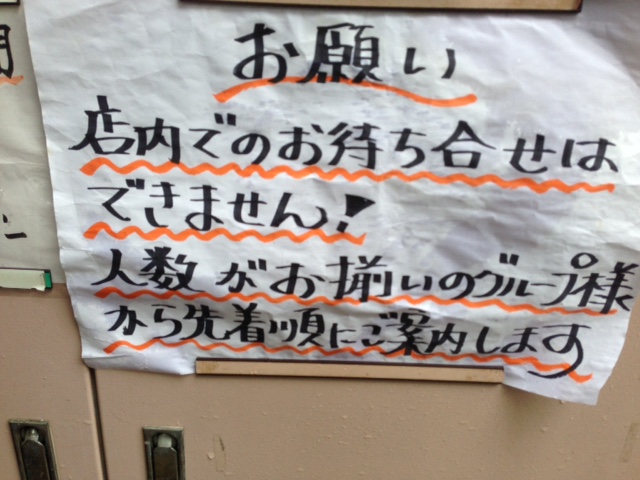 お願い
店内でのお待ち合せは
できません!
人数がお揃いのグループ様
から先着順にご案内します